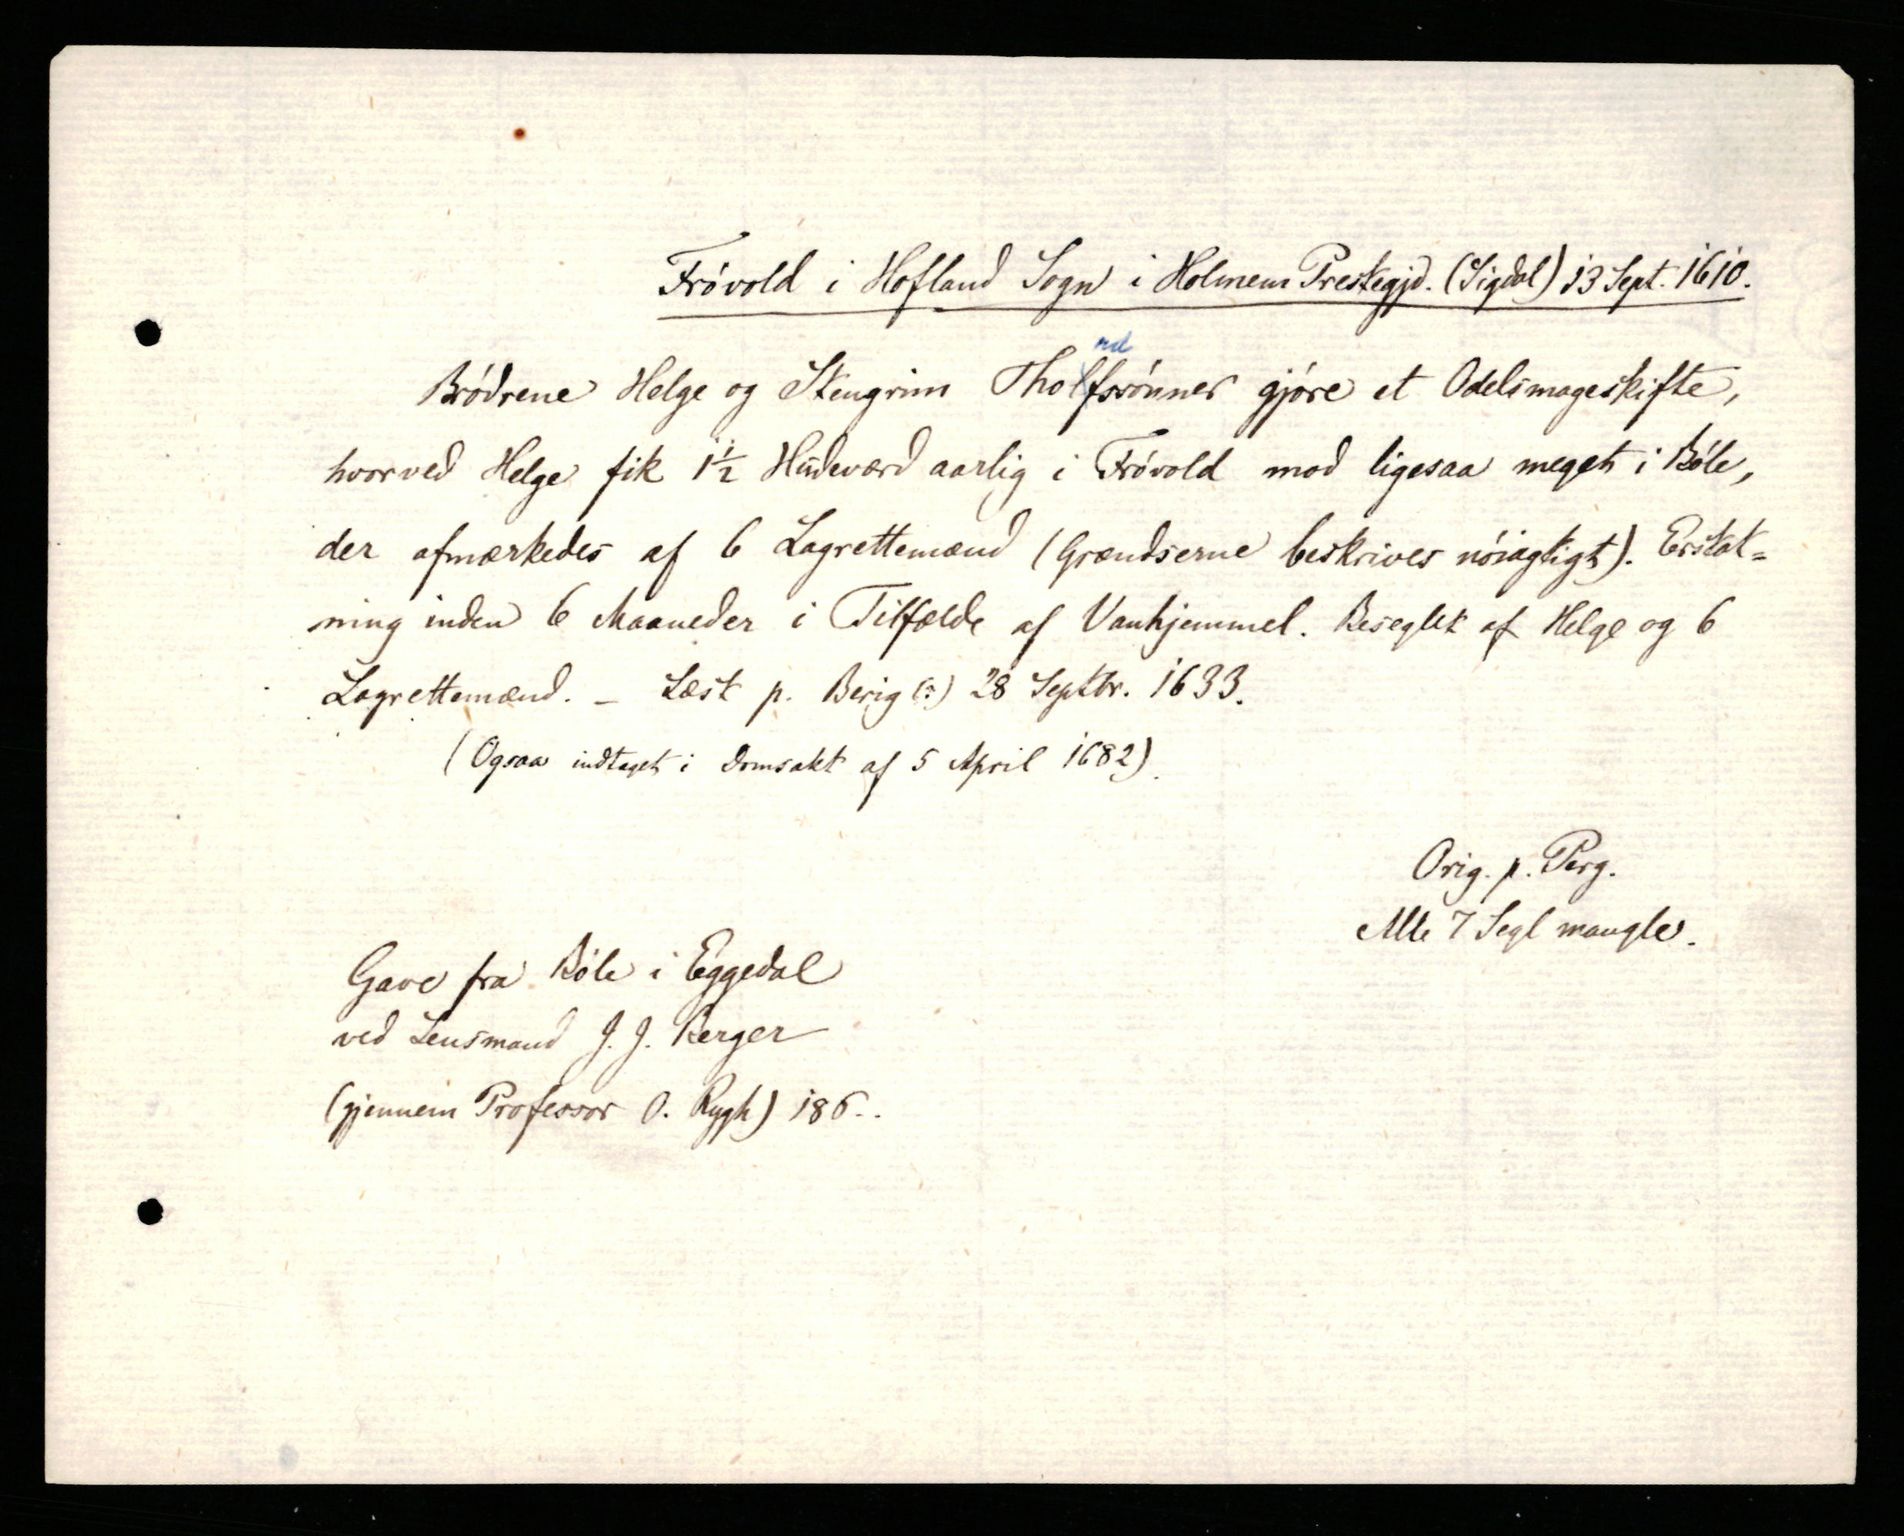 Frövold i Hofland Sogn i Holmens Prestegjd. (Sigdal) 13 Sept. 1610.
nd
Brödrene Helge og Stengrim Tholfssönner gjöre et Odelsmageskifte,
hvorved Helge fik 1½ Hudeværd aarlig i Frövold mod ligesaa meget i Böle,
der afmærkedes af 6 Lagrettemænd (Grændserne beskrives nöiagtigt). Erstat=
ning inden 6 Maaneder i Tilfælde af Vanhjemmel. Beseglet af Helge og 6
Lagrettemænd. – Læst p. Berig (?) 28 Septbr. 1633.
(Ogsaa indtaget i Domsakt af 5 April 1682).
Orig. p. Perg.
Alle 7 Segl mangle.
Gave fra Böle i Eggedal
ved Lensmand J. J. Berger
(gjennem Professor O. Rygh) 186..